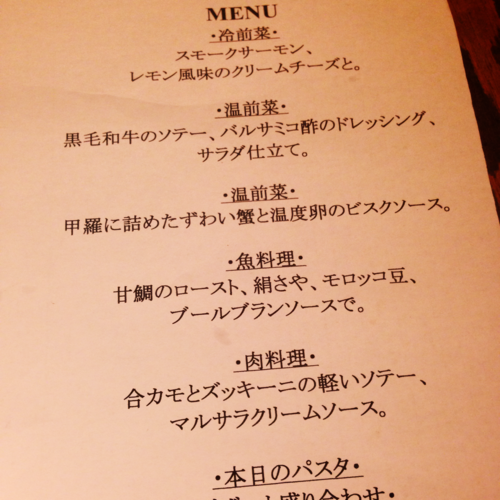 MENU
・冷前菜・
スモークサーモン、
レモン風味のクリームチーズと。
・温前菜・
黒毛和牛のソテー、バルサミコ酢のドレッシング、
サラダ仕立て。
・温前菜・
甲羅に詰めたずわい蟹と温度卵のビスクソース。
・魚料理・
甘鯛のロースト、絹さや、モロッコ豆、
ブールブランソースで。
・肉料理・
合カモとズッキーニの軽いソテー、
マルサラクリームソース。
・本日のパスタ・
盛り合わせ・